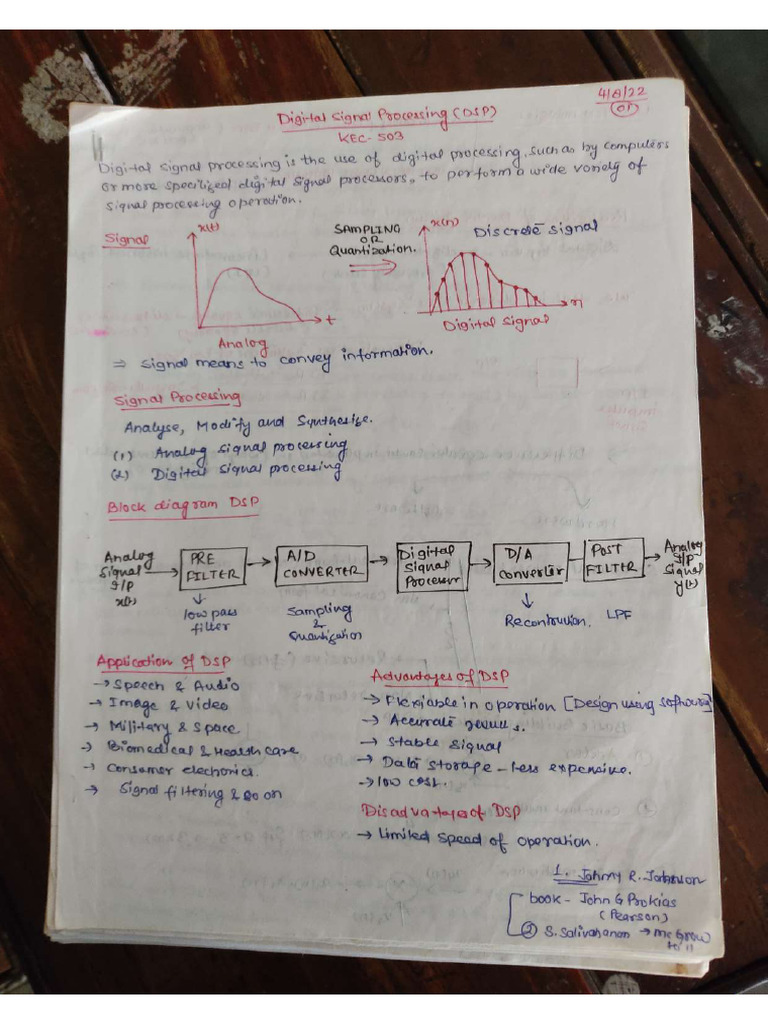 4/8/22
01
Digital Signal Processing (DSP)
KEC-503
Digital signal processing is the use of digital processing, such as by computers
or more specilized digital signal processors, to perform a wide variety of
signal processing operation.
Signal
x(t)
SAMPLING
OR
Quantization.
x(n)
Discrete signal
t
n
Analog
Digital Signal
⇒ Signal means to convey information.
Signal Processing
Analyse, Modify and Synthesize.
(1) Analog signal processing
(2) Digital signal processing
Block diagram DSP
Analog
Signal
I/P
x(t)
PRE
FILTER
A/D
CONVERTER
Digital
Signal
Processor
D/A
Converter
POST
FILTER
Analog
I/P
Signal
y(t)
low pass
filter
Sampling
&
Quantization
Recontruction.
LPF
Application of DSP
→ Speech & Audio
→ Image & Video
→ Military & Space
→ Biomedical & Health care
→ Consumer electronics.
→ Signal filtering & so on
Advantages of DSP
→ Flexiable in operation [Design using software]
→ Accurate results.
→ Stable signal
→ Data storage - less expensive.
→ low cost.
Disadvantages of DSP
→ Limited speed of operation.
1. Johnny R. Johnson
book - John G Prokias
(Pearson)
2 S. Salivahanan → Mc Graw